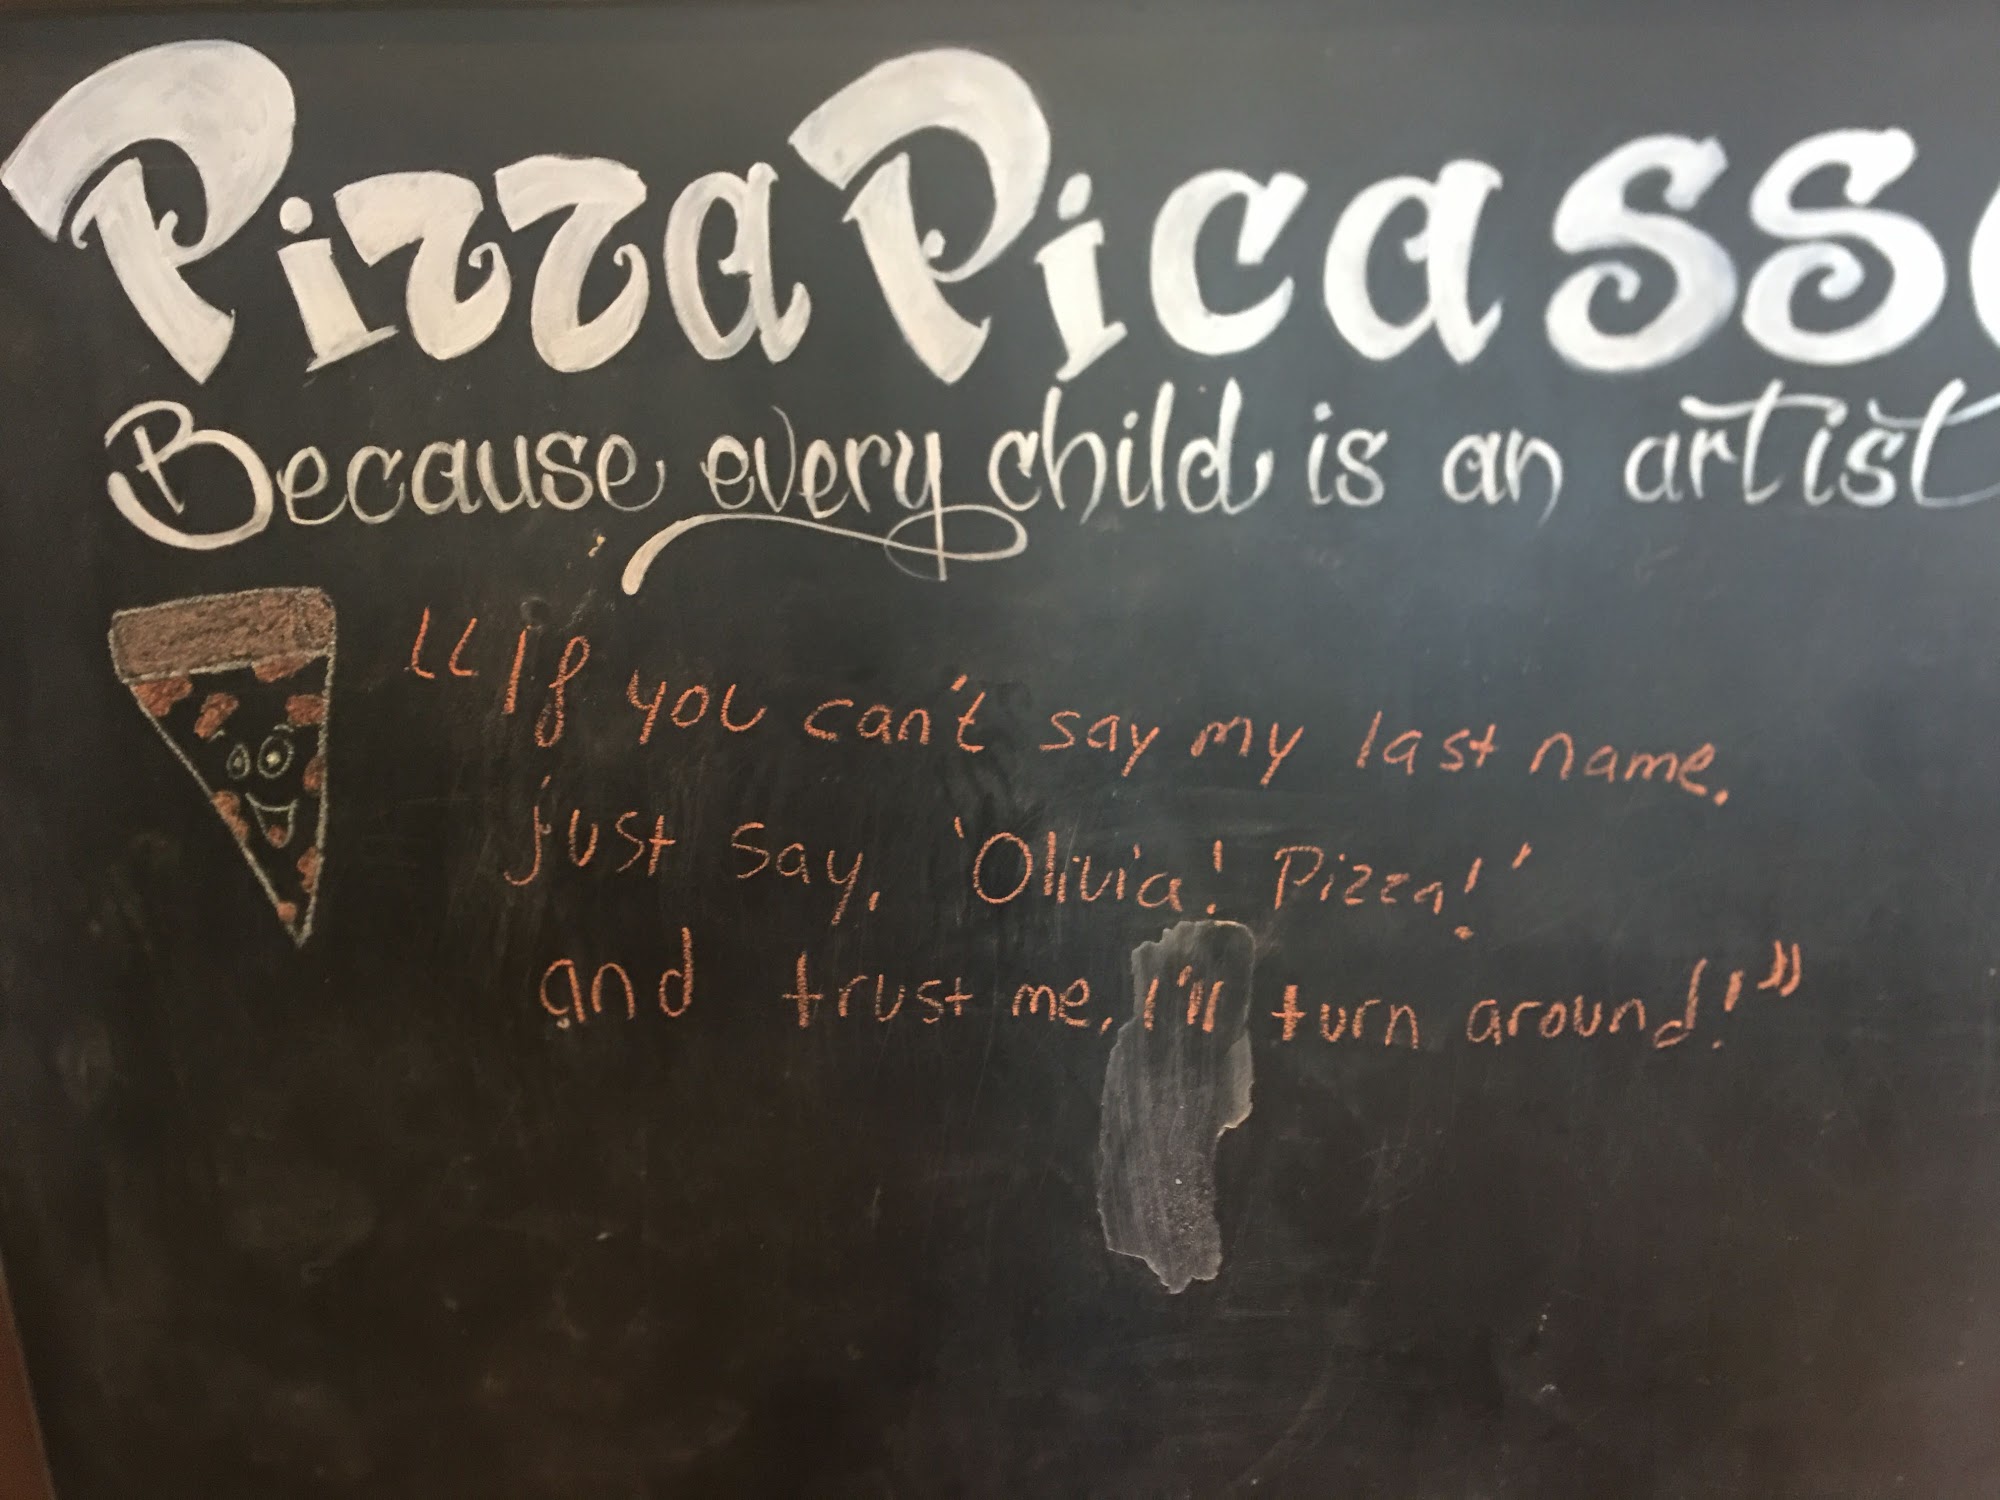 Pizza Picasso
Because every child is an artist
“If you can't say my last name,
just say, ‘Olivia! Pizza!’
and trust me, I'll turn around!”